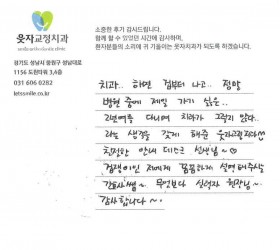 소중한 후기 감사드립니다.
함께 할 수 있었던 시간에 감사하며,
환자분들의 소리에 귀 기울이는 웃자치과가 되도록 하겠습니다.
웃자교정치과
경기도 성남시 분당구 성남대로
1156 도원타워 3,4층
031 606 0282
letssmile.co.kr
치과.. 하면 겁부터 나고.. 정말
병원 중에 제일 가기 싫은..
2년여를 다니며 치과가 그렇지 않다..
라는 생각을 갖게 해준 웃자교정치과♡
친절한 안내 데스크 선생님~♡
겁쟁이인 저에게 꼼꼼하게 설명해주신
쌤~ 무엇보다 실력자 원장님~
감사합니다~.